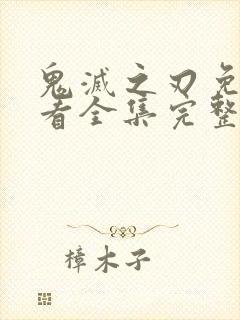 鬼滅之刃免
看全集完整
樟木子